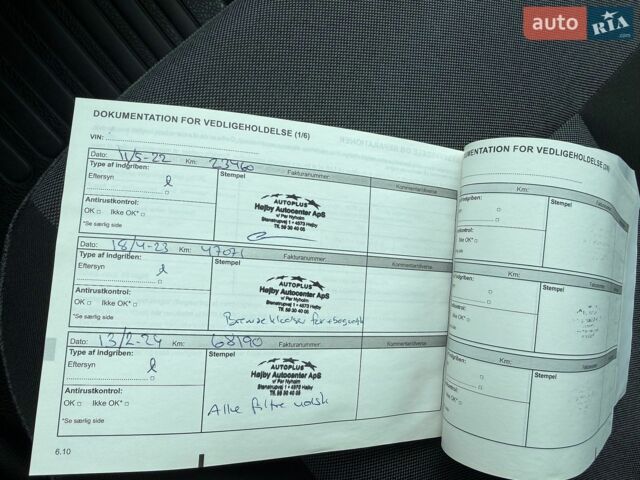 auto RIA .com
DOKUMENTATION FOR VEDLIGEHOLDELSE (1/6)
VIN:
Dato: 11/5-22 Km: 23960 Fakturanummer: Kommentar/diverse
Type af indgriben: Stempel
Eftersyn
AUTOPLUS
Højby Autocenter ApS
v/ Per Nyholm
Stenstrupvej 1 • 4573 Højby
Tlf. 59 30 40 05
Antirustkontrol:
OK □ Ikke OK* □
*Se særlig side
Dato: 18/4-23 Km: 47071 Fakturanummer: Kommentar/diverse
Type af indgriben: Stempel
Eftersyn
AUTOPLUS
Højby Autocenter ApS
v/ Per Nyholm
Stenstrupvej 1 • 4573 Højby
Tlf. 59 30 40 05
Antirustkontrol:
OK □ Ikke OK* □
*Se særlig side
Dato: 13/2-24 Km: 68190 Fakturanummer: Kommentar/diverse
Type af indgriben: Stempel
Eftersyn
AUTOPLUS
Højby Autocenter ApS
v/ Per Nyholm
Stenstrupvej 1 • 4573 Højby
Tlf. 59 30 40 05
Alle filtre
Antirustkontrol:
OK □ Ikke OK* □
*Se særlig side
6.10
MENTATION FOR VEDLIGEHOLDELSE
Km:
Stempel
Km:
Stempel
Km:
Stempel